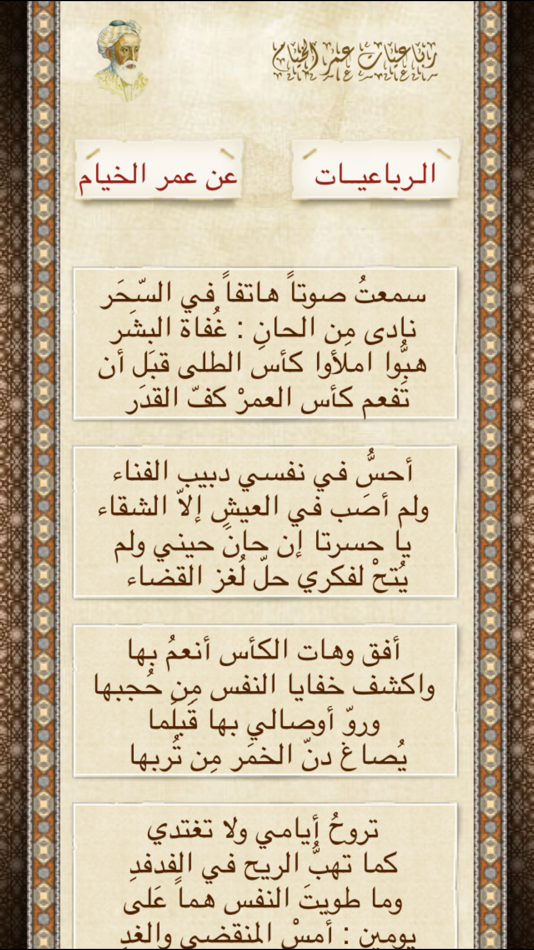 رباعيات عمر الخيام
الرباعيــات
عن عمر الخيام
سمعتُ صوتاً هاتفاً في السّحَر
نادى مِن الحانِ : غُفاة البشَر
هبُّوا املأوا كأس الطلى قبَل أن
تَفعم كأس العمرْ كفّ القدَر
أحسُّ في نفسي دبيب الفناء
ولم أصَب في العيشِ إلاّ الشقاء
يا حسرتا إن حانَ حيني ولم
يُتحْ لفكري حلّ لُغز القضاء
أفق وهات الكأس أنعمُ بها
واكشف خفايا النفس مِن حُجبها
وروّ أوصالي بها قَبلَما
يُصاغ دنّ الخمَر مِن تُربها
تروحُ أيامي ولا تغتدي
كما تهبُّ الريح في الفدفدِ
وما طويتَ النفس هماً عَلى
يومين : أمسْ المنقضى والغد